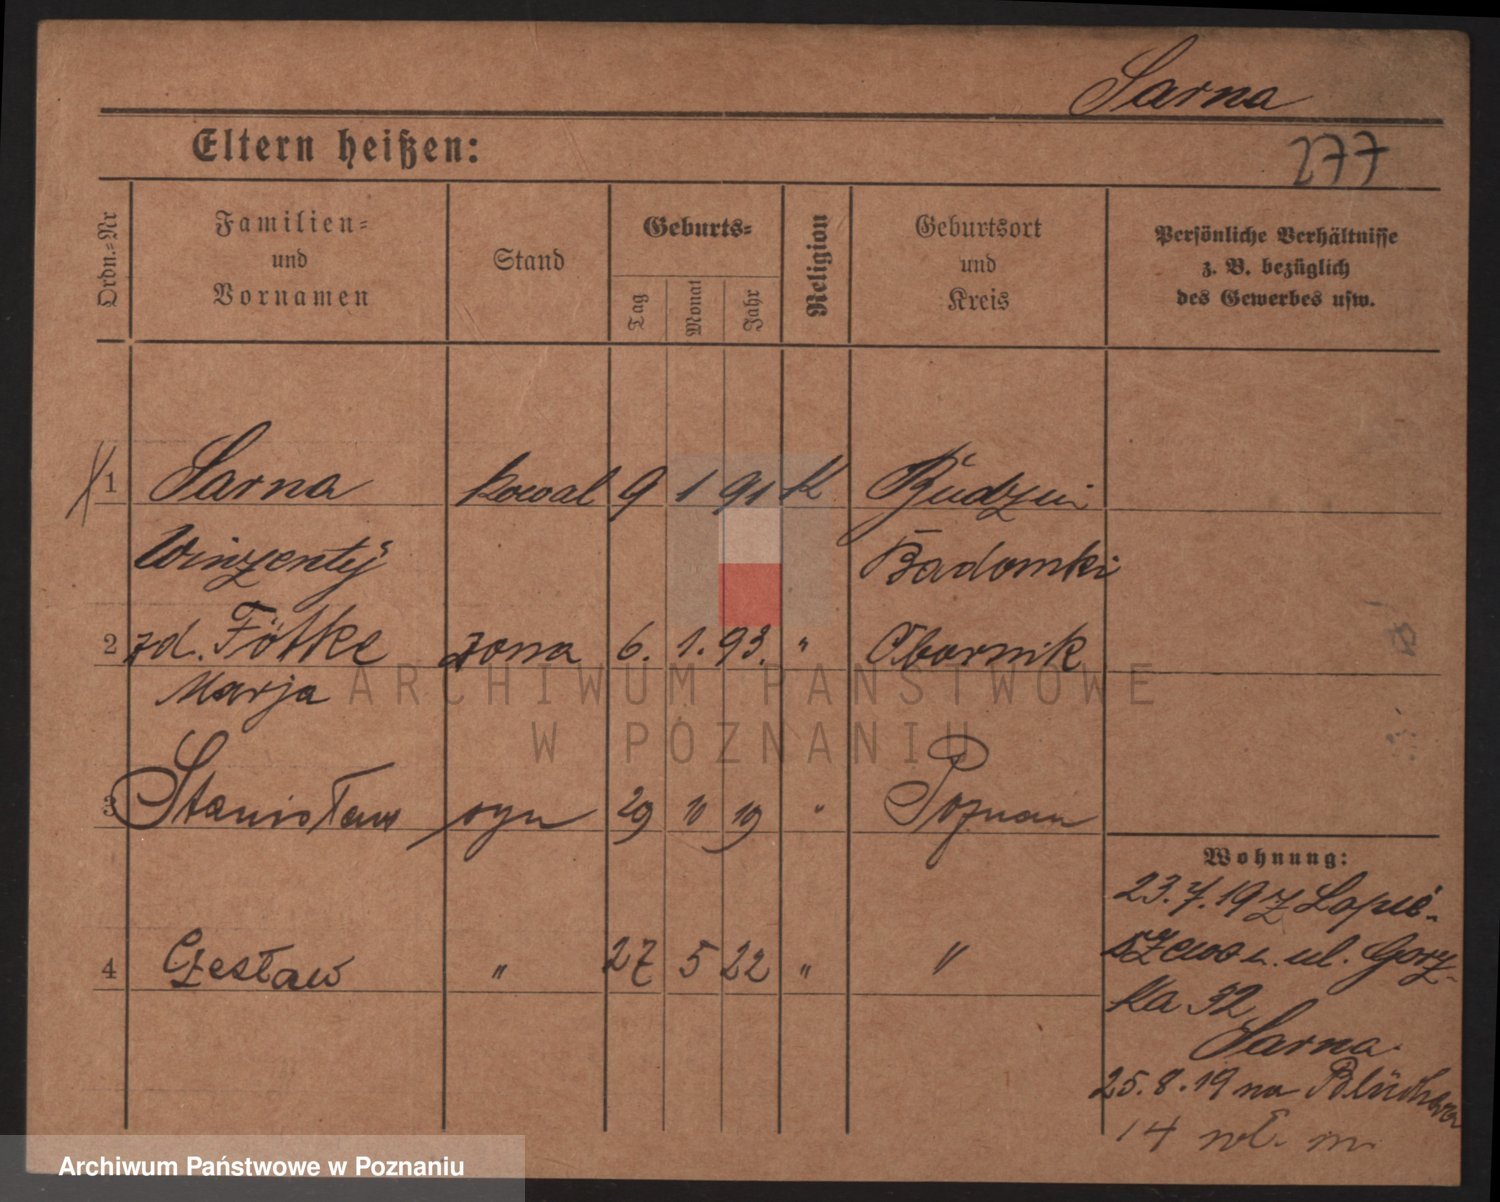 Sarna
277
Eltern heißen:
Ordn.-Nr
Familien-
und
Vornamen
Stand
Geburts-
Tag
Monat
Jahr
Religion
Geburtsort
und
Kreis
Persönliche Verhältnisse
z. B. bezüglich
des Gewerbes usw.
1 Sarna kowal 9 1 91 K Budzin
Winzenty
2 zd. Fötke zona 6. 1. 93. " Obornik
Marja
3 Stanisław syn 29 10 19 " Poznan
Wohnung:
4 Czesław " 27 5 22 " "
23.7.19 z
ul. Gorz-
ka 32
Sarna
25.8.19 na Blüchera
14
ARCHIWUM PAŃSTWOWE
W POZNANIU
Archiwum Państwowe w Poznaniu